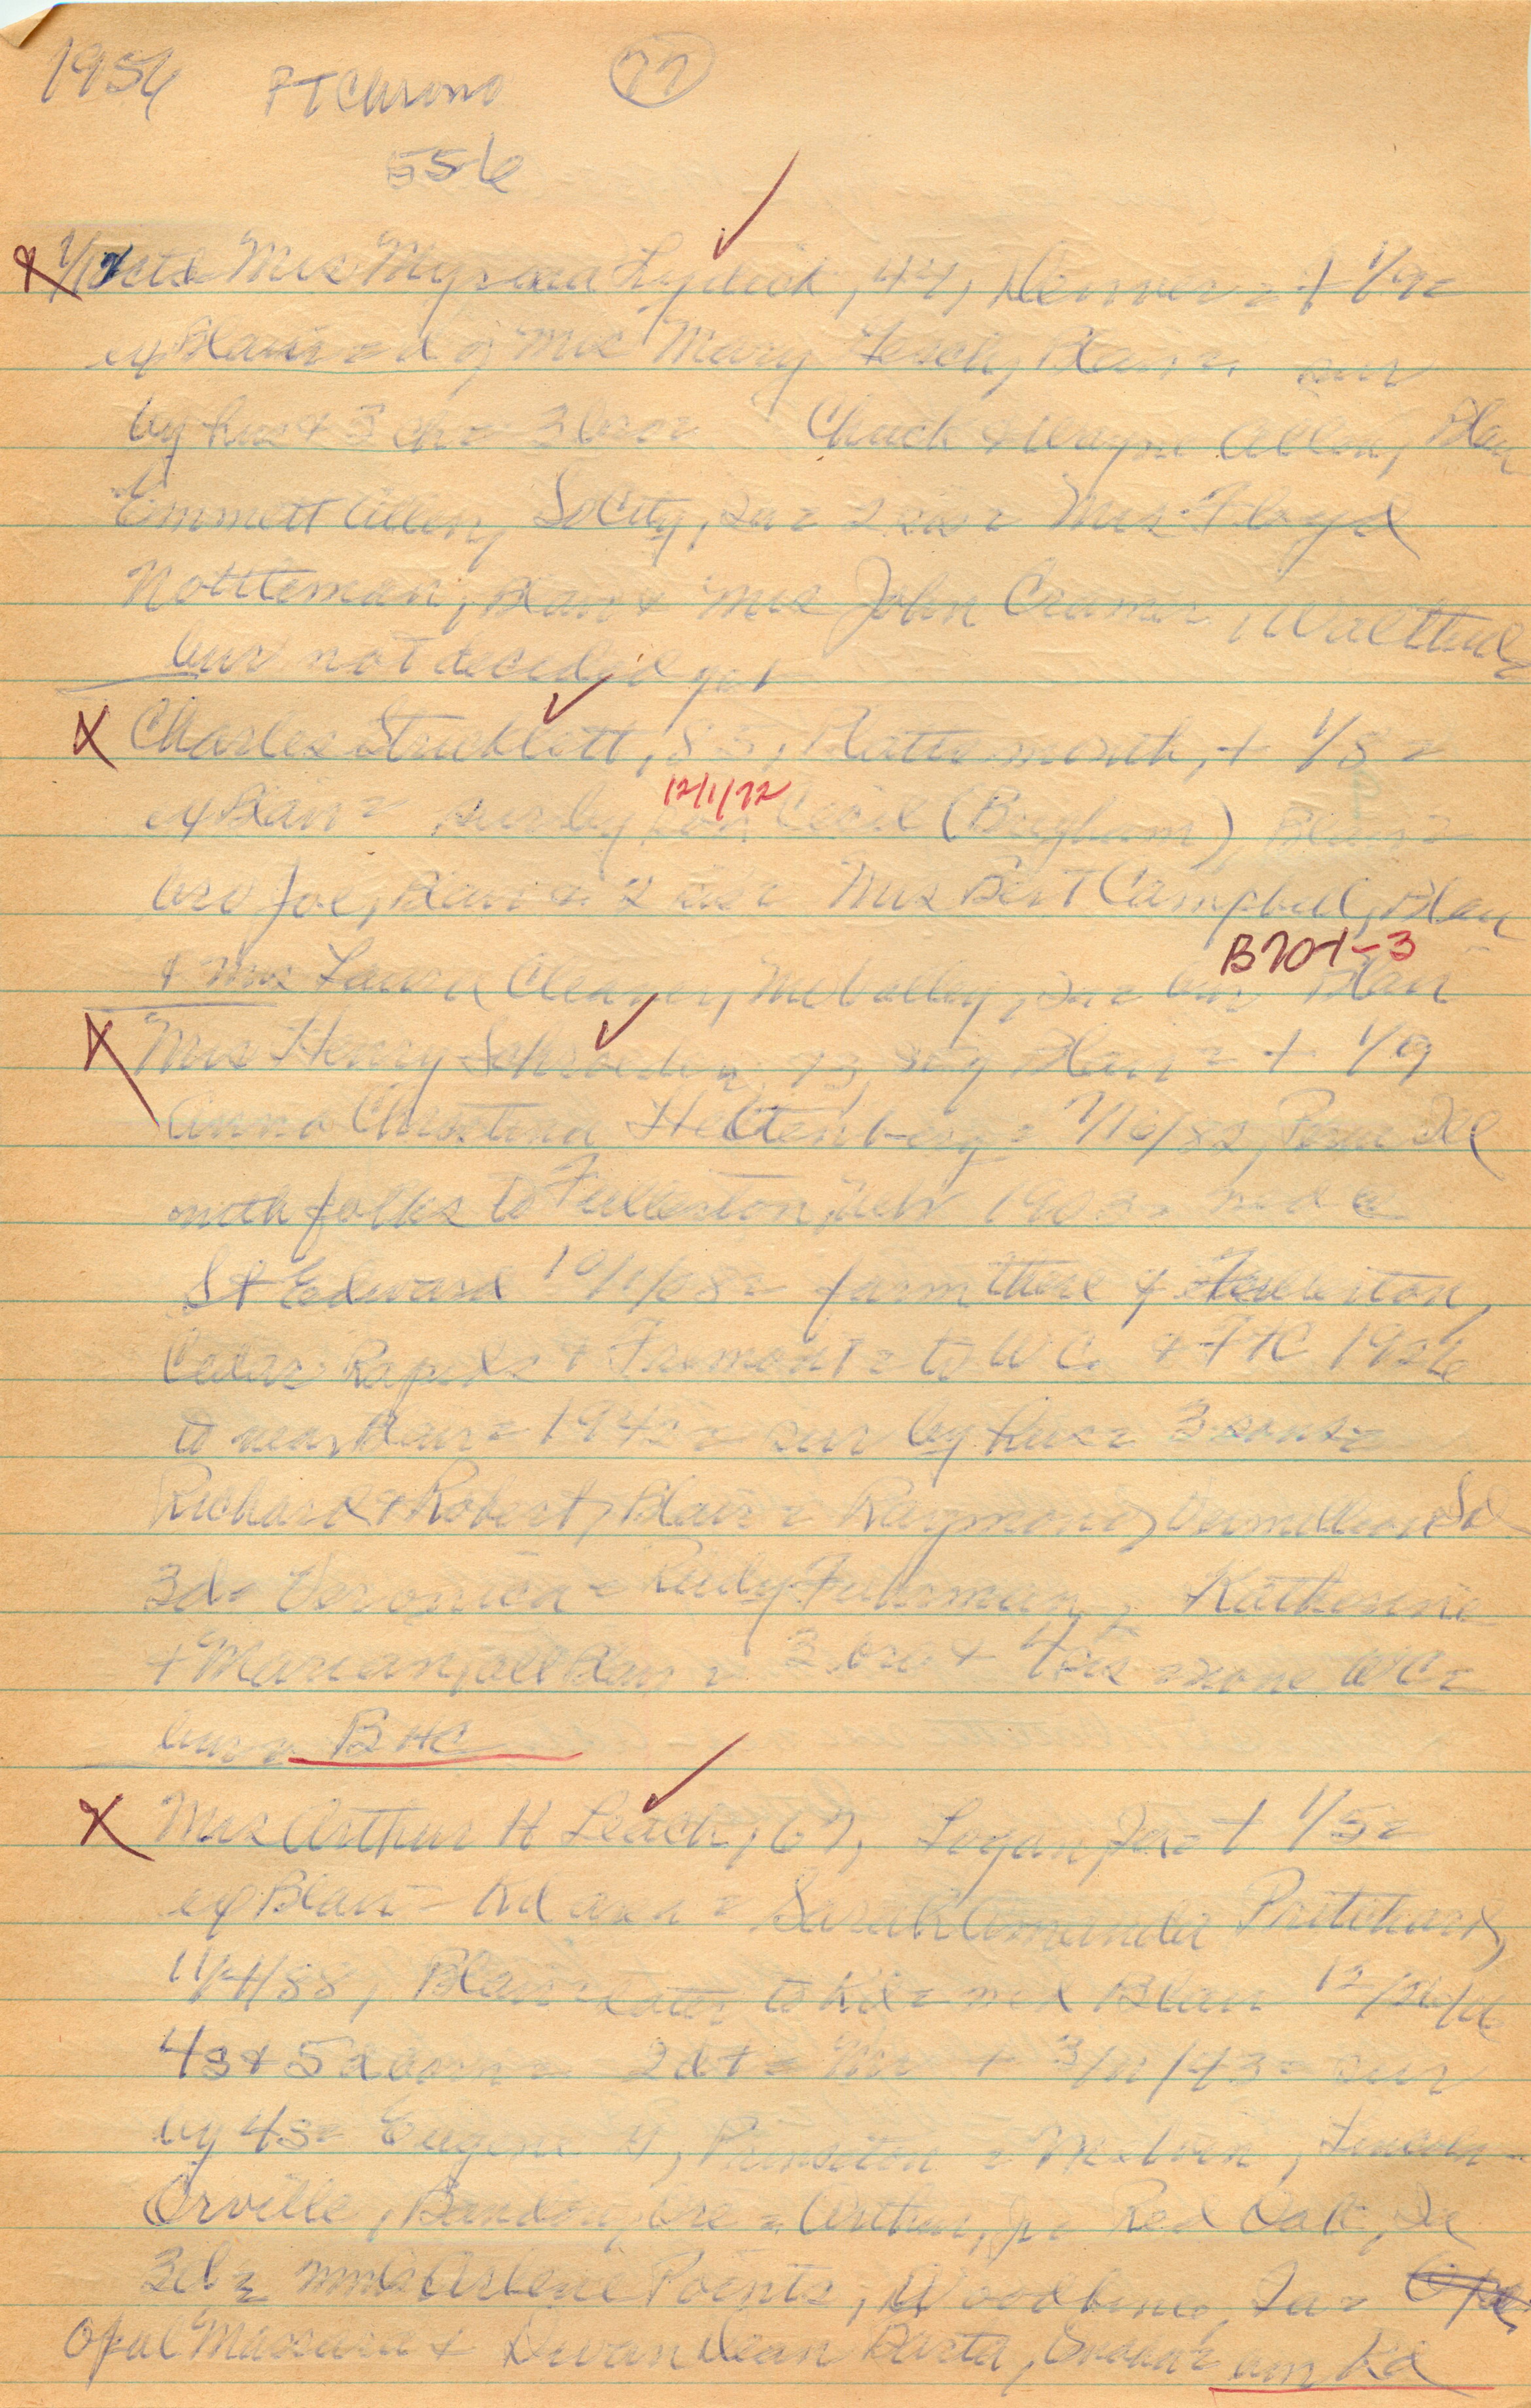 1956 PT Chrono 77
556
Mrs Myrna Lydick, 44, Denver = + 1/9 =
ex Blair = d of Mrs Mary Fesch, Blair, sur
by hus + 3 ch = 3 bro = Chuck + Wayne Allen, Blair
Emmett Allen, SoCity, = 2 sis = Mrs Floyd
Nottleman, Blair + Mrs John Cramer, Walthill =
bur not decided yet
X Charles Stricklett, 83, Plattsmouth, + 1/8 =
12/1/72
ex Blair = sur by son Cecil (Brigham), Blair =
bro Joe, Blair = 2 sis = Mrs Bert Campbell, Blair
B701-3
+ Mrs Laura Cleaver, Mo Valley, = bur Blair
X Mrs Henry Schroeder, 73, Blair = + 1/9
Anna Christina = 7/16/82, Peru Ill
with folks to Fullerton, Nebr = md @
St Edward 10/1/08 = farm there + Fullerton,
Cedar Rapids + Fremont = to WC + FTC 1926
to near Blair = 1942 = sur by hus = 3 sons =
Richard + Robert, Blair = Raymond, Vermillion Sd
3d = Veronica = Rudy Fuhrman, Katherine
+ Marian, all Blair = 3 bro + 4 sis = none WC =
bur = BHC
X Mrs Arthur H Leach, 67, Logan, Ia = + 1/5 =
ex Blair - Kd area = Sarah Amanda Pritchard,
11/4/88, Blair = later to Kd = md Blair 12/26/06
4s + 5d born = 2d + = Mr + 3/11/43 = sur
by 4s = Eugene H, Princeton = Melvin, Lincoln =
Orville, Bandon, Ore = Arthur, Jr = Red Oak, Ia
3d = Mmes Arlene Points, Woodbine, Ia =
Opal + Dean Barta, Omaha = bur Kd